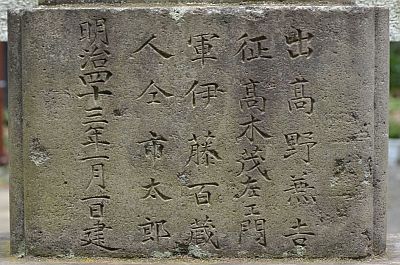 出髙野兼吉
征髙木茂左ヱ門
軍伊藤百蔵
人仝市太郎
明治四十三年一月一日建